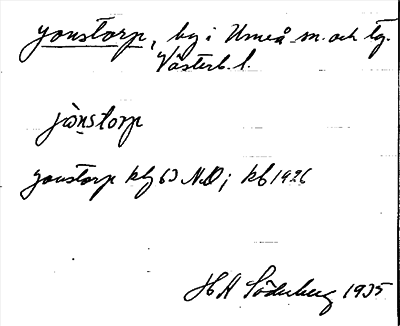 yonstorp, by i Umeå sn. och tg.
Västerb. l.
jònstorp
yonstorp kbg 63 N.O; kb 1926
H A Söderberg 1935